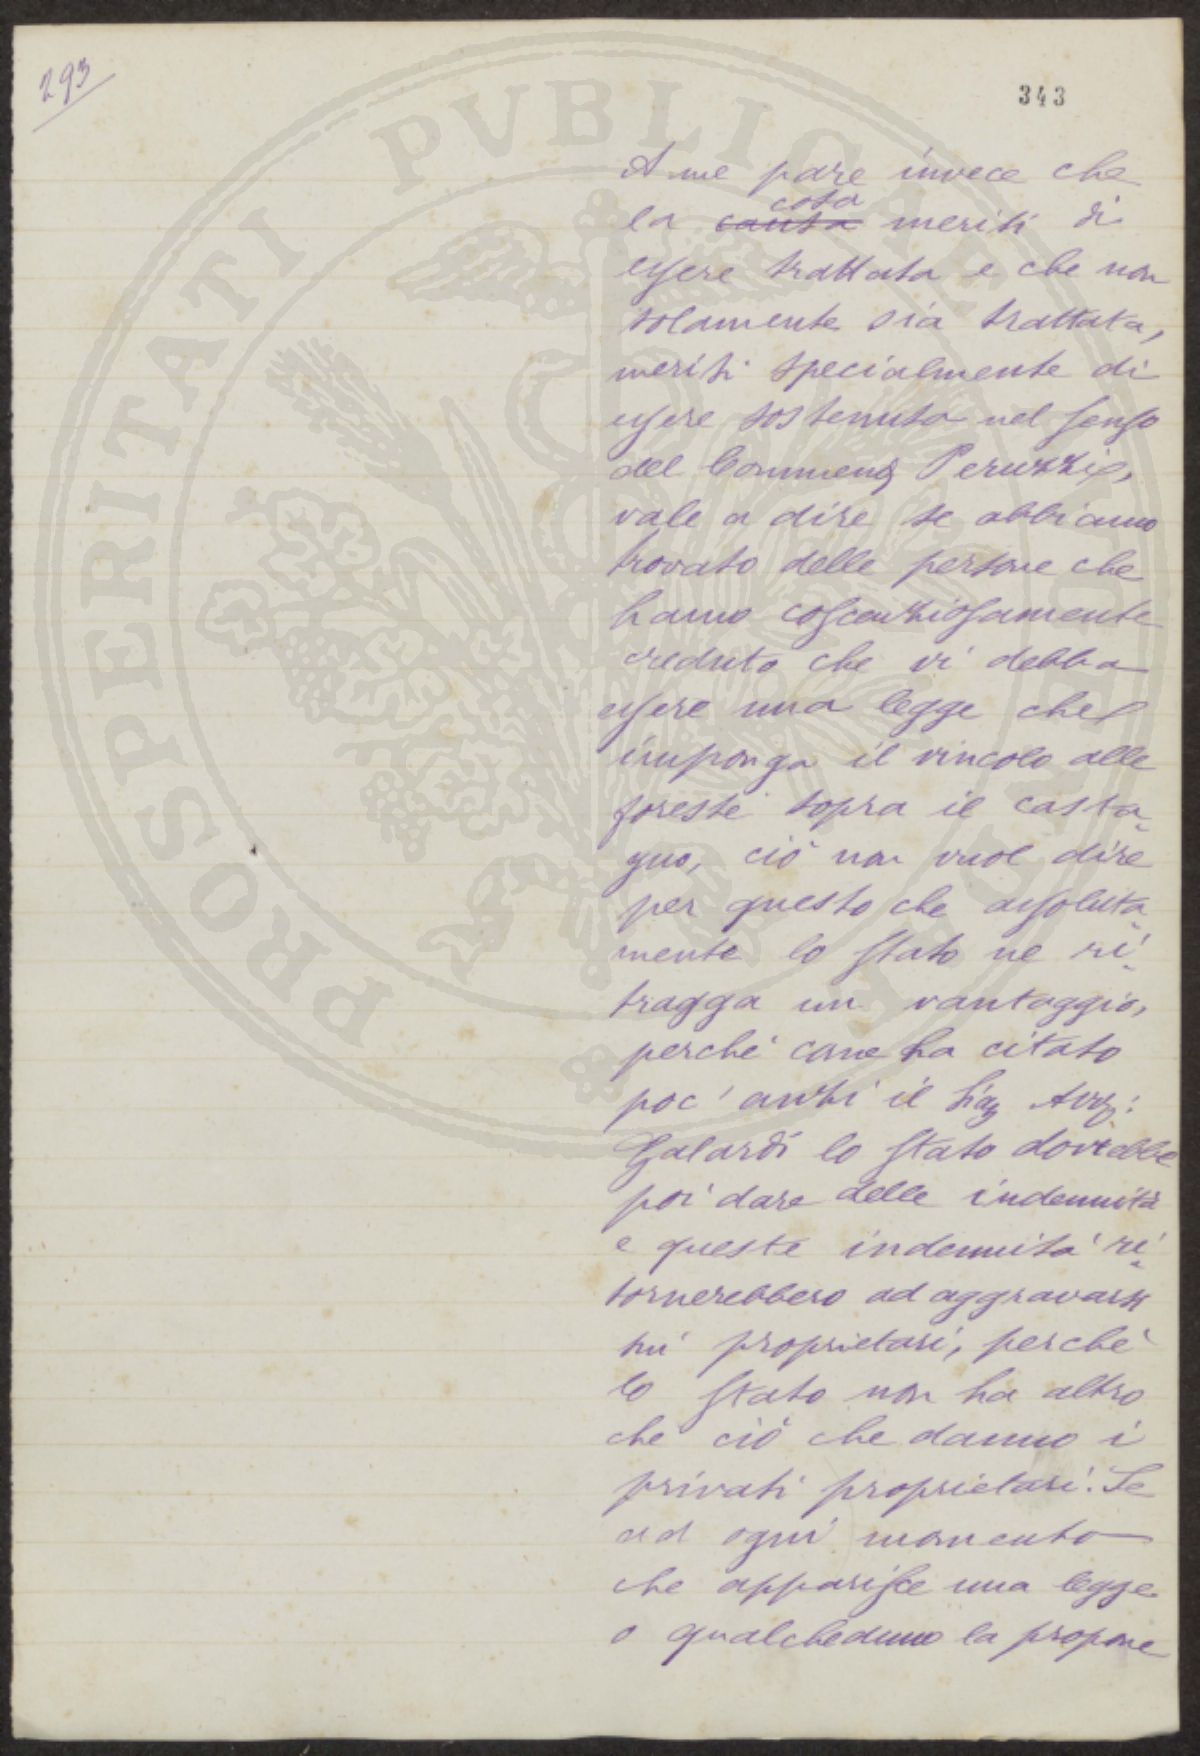 293
343
A me pare invece che
la causa cosa meriti di
essere trattata e che non
solamente sia trattata,
meriti specialmente di
essere sostenuta nel senso
del Commend Peruzzi,
vale a dire se abbiamo
trovato delle persone che
hanno coscenziosamente
creduto che vi debba
essere una legge che
imponga il vincolo alle
foreste sopra il casta-
gno, ciò non vuol dire
per questo che assoluta-
mente lo Stato ne ri-
tragga un vantaggio,
perché come ha citato
poc'anzi il Sig Avv:
Galardi lo Stato dovrebbe
poi dare delle indennità
e queste indennità ri-
tornerebbero ad aggravarsi
sui proprietari, perché
lo Stato non ha altro
che ciò che danno i
privati proprietari. Se
ad ogni momento
che apparisce una legge
o qualcheduno la propone
PUBLICAE
PROSPERITATI